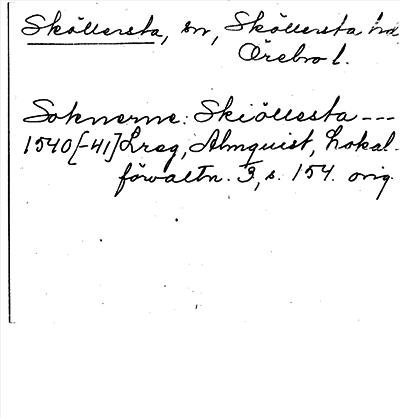 Sköllersta, sn, Sköllersta hd,
Örebro l.
Soknerne: Skiöllesta ---
1540[-41] Lreg, Almquist, Lokal-
förvaltn. 3, s. 154. orig.